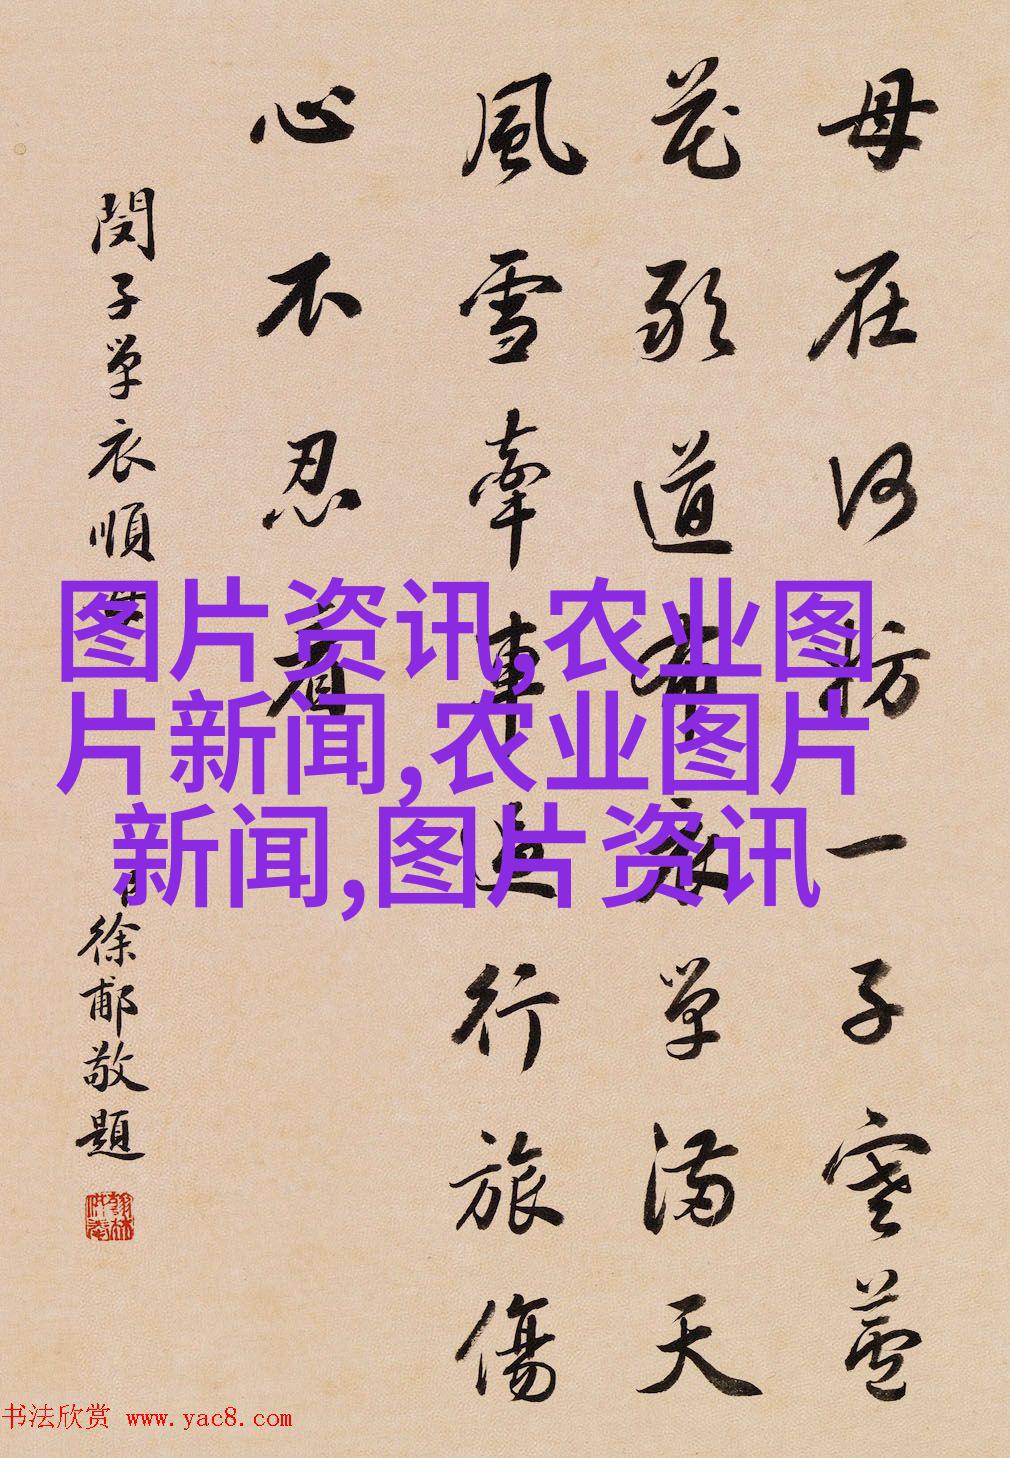 母在何妨一子寒蘆
花敢道布單滿天
風雪牽車過行旅傷
心不忍看
閔子單衣順母
徐郙敬題
翰林供奉
图片资讯,农业图
片新闻,农业图片
新闻,图片资讯
书法欣赏 www.yac8.com